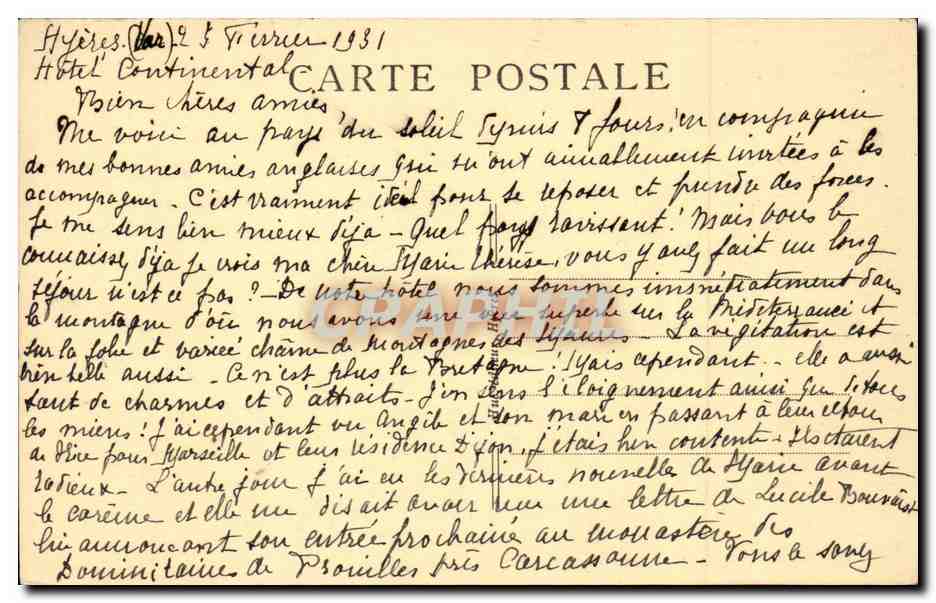 Hyères (Var) 25 Février 1931
Hôtel Continental
CARTE POSTALE
Bien chères amies
Me voici au pays du soleil depuis 8 jours! en compagnie
de mes bonnes amies anglaises qui m'ont aimablement invitées à les
accompagner - C'est vraiment idéal pour se reposer et prendre des forces.
Je me sens bien mieux déja - Quel pays ravissant! Mais vous le
connaissez déja je crois ma chère Marie Thérèse, vous y avez fait un long
séjour n'est ce pas? - De notre hôtel nous sommes immédiatement dans
la montagne d'où nous avons une vue superbe sur la Méditerranée et
sur la jolie et variée chaîne de Montagnes des Maures - La végétation est
bien belle aussi - Ce n'est plus la Bretagne! Mais cependant elle a aussi
tant de charmes et d'attraits - J'en sens l'éloignement ainsi que de tous
les miens! J'ai cependant vu Angèle et son mari en passant à leur retour
de Nice pour Marseille et leur résidence Dijon, j'étais bien contente - Ils étaient
radieux - L'autre jour j'ai eu les dernières nouvelles de Marie avant
le carême et elle me disait avoir une lettre de Lucile
lui annonçant son entrée prochaine au monastère des
Dominicaines de Prouilles près Carcassonne - Vous le savez